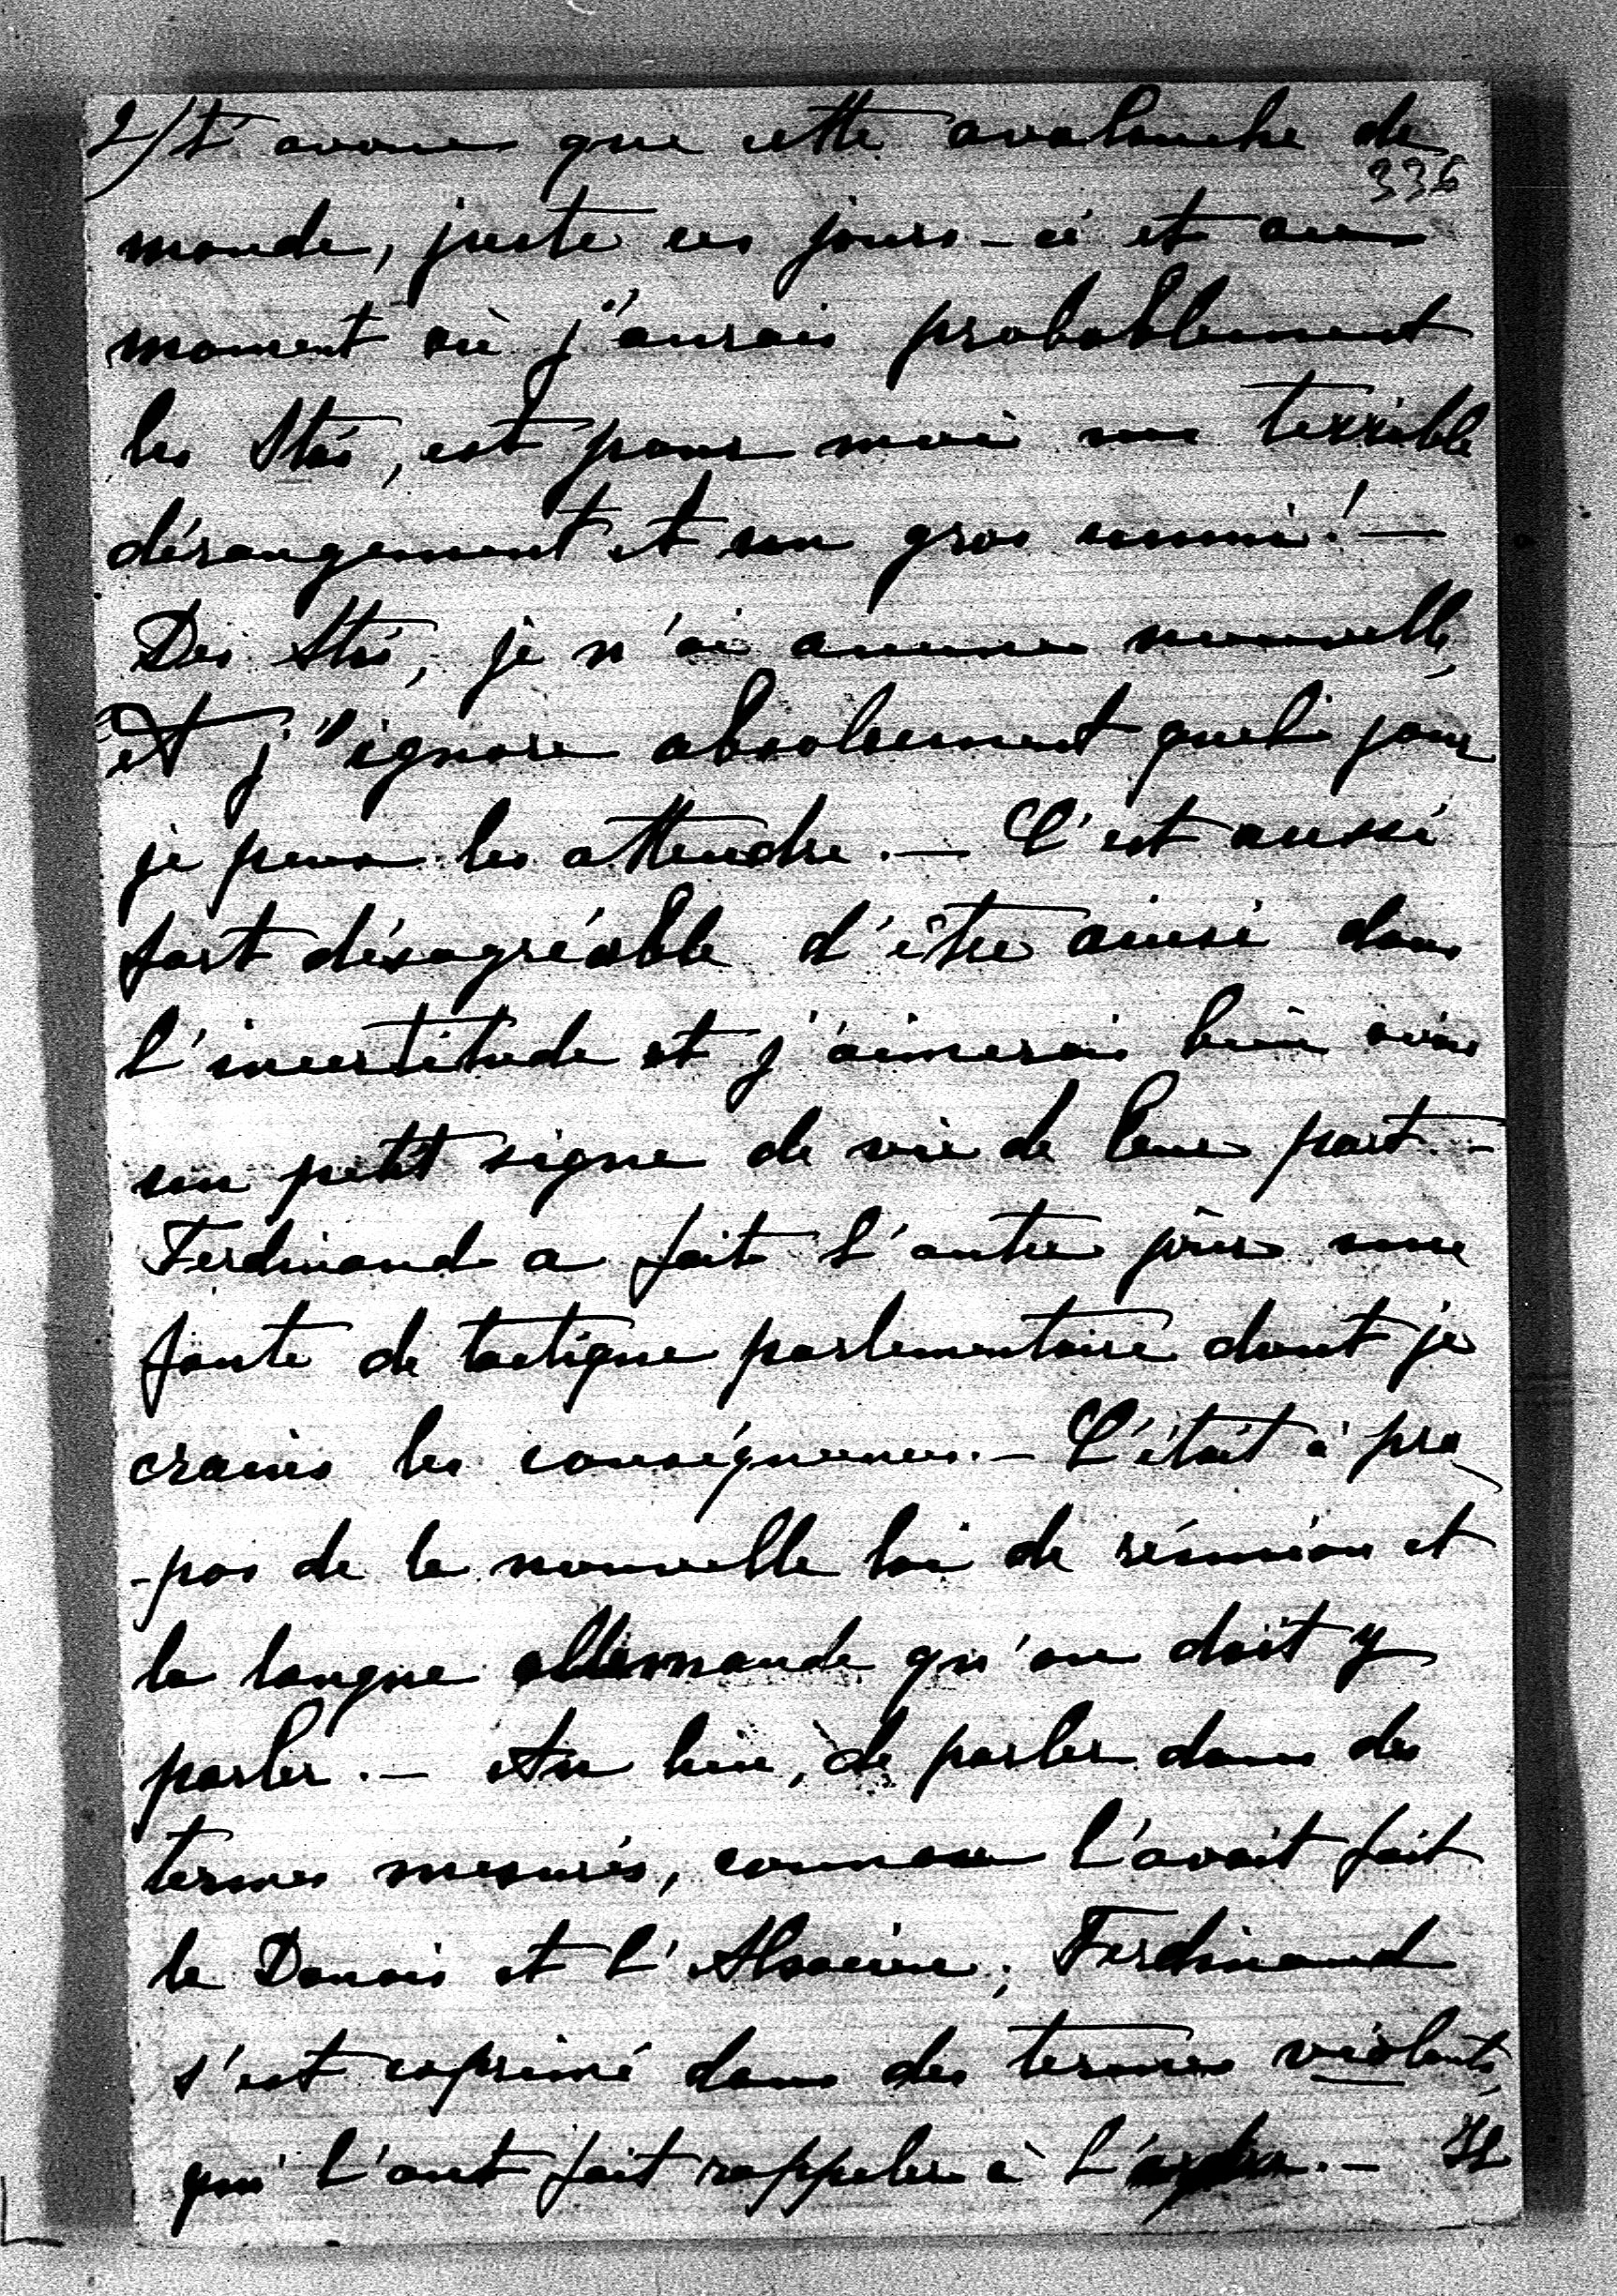 2/ t'avoue que cette avalanche de
336
monde, juste ces jours-ci et au
moment où j'aurais probablement
les Stás, est pour moi une terrible
dérangement et un gros ennui! —
Des Stás, je n'ai aucune nouvelle,
et j'ignore absolument quel jour
je peux les attendre. — C'est aussi
fort désagréable d'être ainsi dans
l'incertitude et j'aimerais bien avoir
un petit signe de vie de leur part. —
Ferdinand a fait l'autre jour une
faute de tactique parlementaire dont je
crains les conséquences. — C'était à pro
-pos de la nouvelle loi de réunion et
la langue allemande qu'on doit y
parler. — Au lieu, de parler dans des
termes mesurés, comme l'avait fait
le Danois et l'Alsacien; Ferdinand
s'est exprimé dans des termes violents,
qui l'ont fait rappeler à l'ordre. — Il